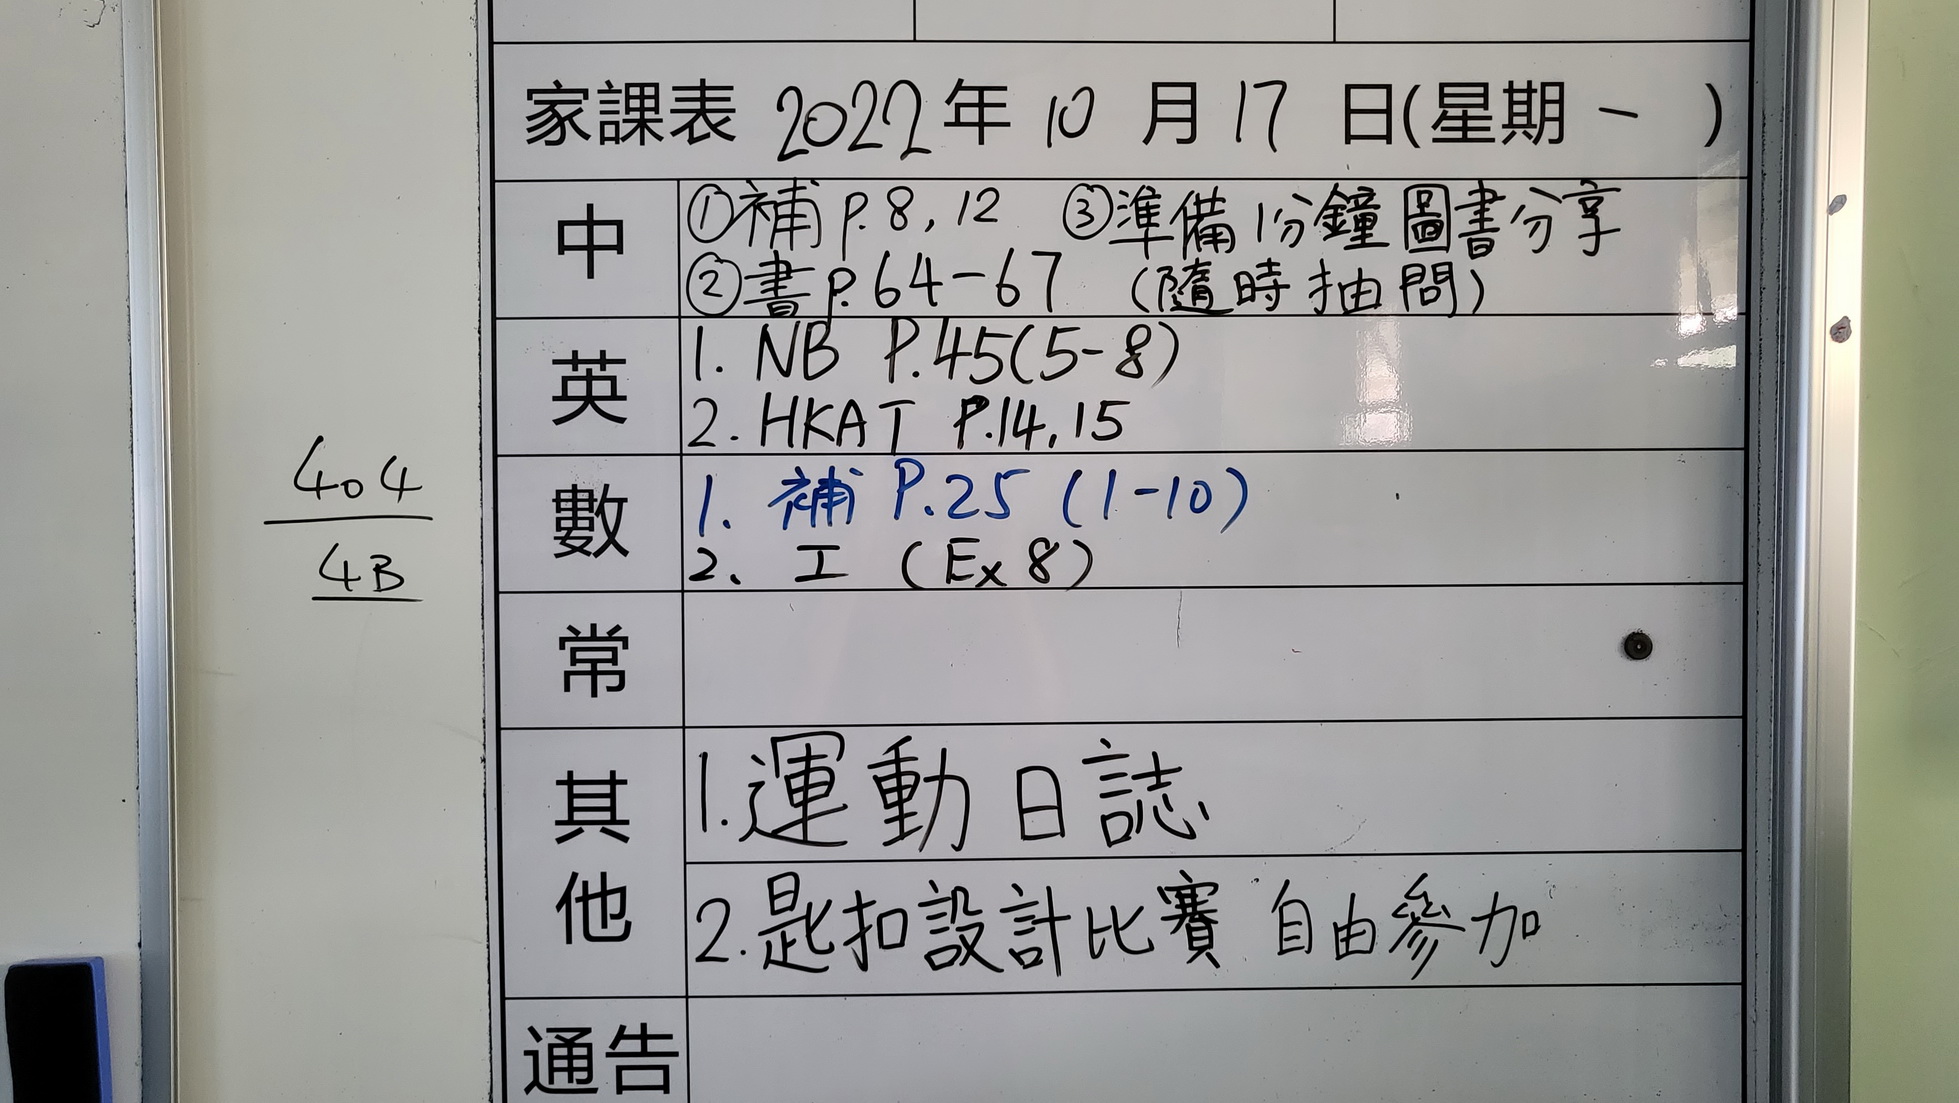 家課表 2022年 10 月 17 日(星期 一 )
中
①補 P.8, 12 ③準備 1分鐘 圖書分享
②書 P.64-67 (隨時抽問)
英
1. NB P.45(5-8)
2. HKAT P.14,15
數
1. 補 P.25 (1-10)
2. 工 (Ex 8)
常
其他
1.運動日誌
2.匙扣設計比賽 自由參加
通告
404
4B